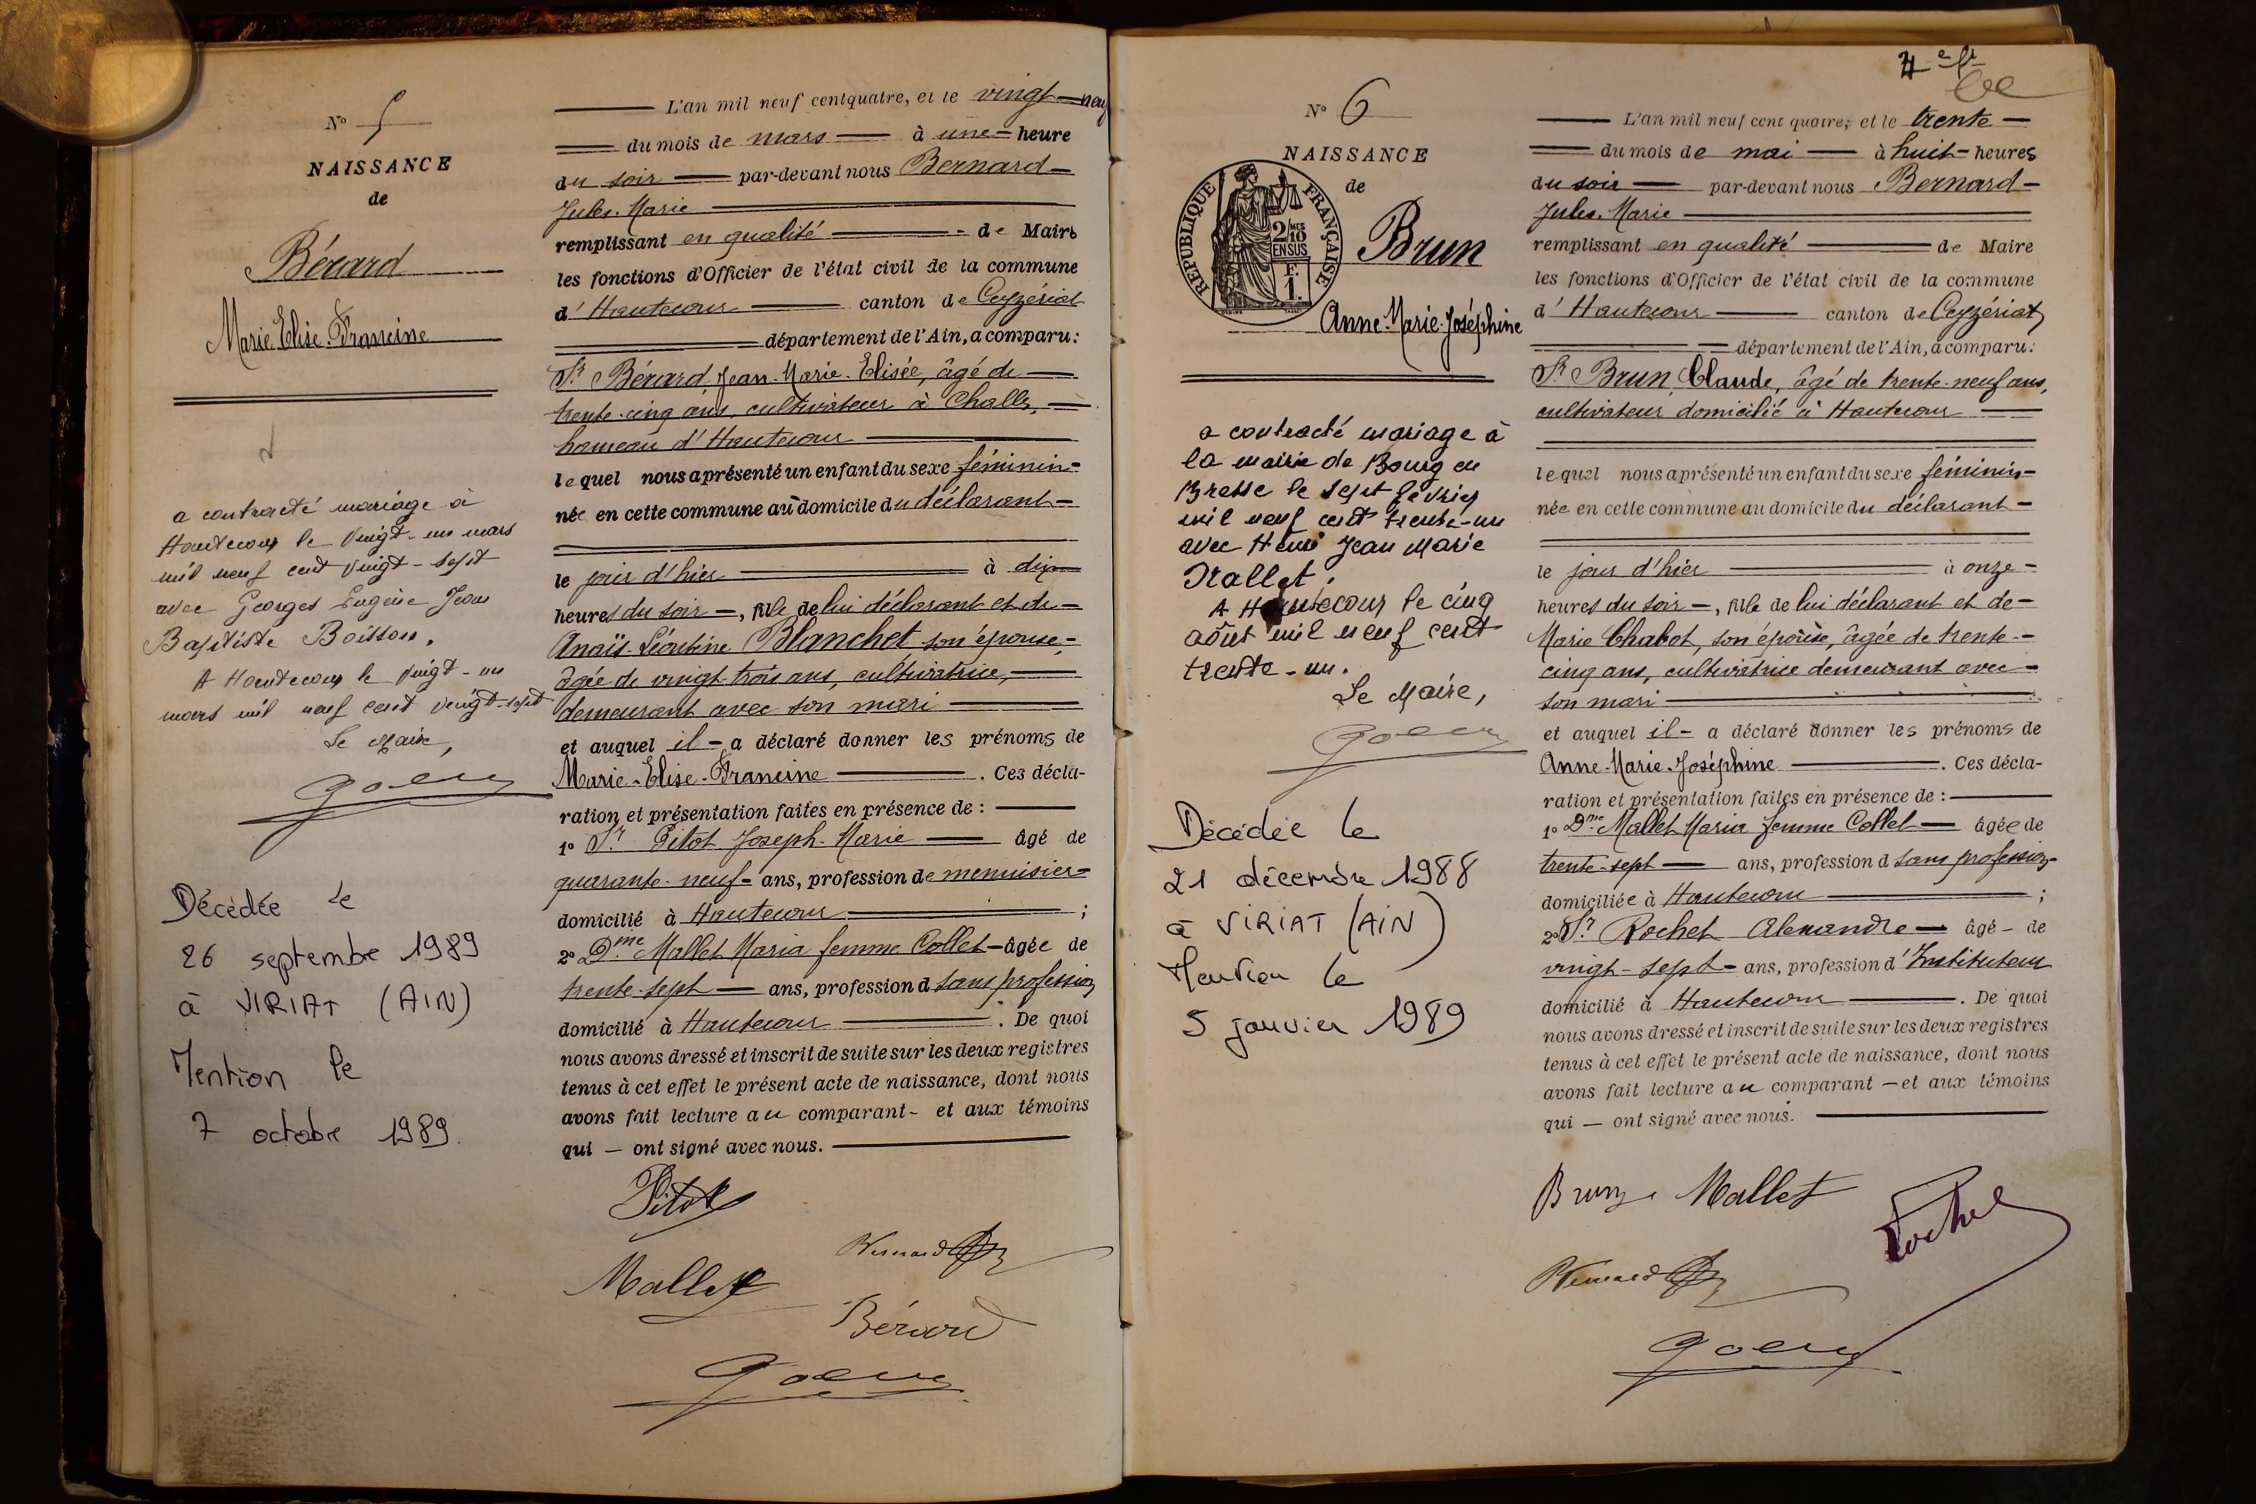 N° 5
NAISSANCE
de
Bérard
Marie-Elise-Francine
a contracté mariage à
Hautecour le vingt-un mars
mil neuf cent vingt-sept
avec Georges Eugène Jean
Baptiste Boisson.
A Hautecour le vingt-un
mars mil neuf cent vingt-sept
Le Maire,
Décédée le
26 septembre 1989
à VIRIAT (AIN)
Mention le
7 octobre 1989.
L'an mil neuf cent quatre, et le vingt-neuf
du mois de mars à une heure
du soir par-devant nous Bernard
Jules-Marie
remplissant en qualité de Maire
les fonctions d'Officier de l'état civil de la commune
d'Hautecour canton de Ceyzériat
département de l'Ain, a comparu:
Sr Bérard Jean-Marie-Elisée, âgé de
trente-cinq ans, cultivateur à Challes,
hameau d'Hautecour
lequel nous a présenté un enfant du sexe féminin
née en cette commune au domicile du déclarant
le jour d'hier à dix
heures du soir, fille de lui déclarant et de
Anaïs-Léontine Blanchet son épouse,
âgée de vingt-trois ans, cultivatrice,
demeurant avec son mari
et auquel il a déclaré donner les prénoms de
Marie-Elise-Francine. Ces décla-
ration et présentation faites en présence de :
1° Sr Pitot Joseph-Marie âgé de
quarante-neuf ans, profession de menuisier
domicilié à Hautecour ;
2° Dme Mallet Maria femme Collet âgée de
trente-sept ans, profession d sans profession
domicilié à Hautecour. De quoi
nous avons dressé et inscrit de suite sur les deux registres
tenus à cet effet le présent acte de naissance, dont nous
avons fait lecture au comparant et aux témoins
qui ont signé avec nous.
Pitot
Bernard
Mallet
Bérard
N° 6
NAISSANCE
de
REPUBLIQUE FRANÇAISE
2/10
EN SUS
F.
1.
Brun
Anne-Marie-Joséphine
a contracté mariage à
la mairie de Bourg en
Bresse le sept février
mil neuf cent trente-un
avec Henri Jean Marie
A Hautecour le cinq
août mil neuf cent
trente-un.
Le Maire,
Décédée le
21 décembre 1988
à VIRIAT (AIN)
Mention le
5 janvier 1989
L'an mil neuf cent quatre, et le trente
du mois de mai à huit heures
du soir par-devant nous Bernard
Jules-Marie
remplissant en qualité de Maire
les fonctions d'Officier de l'état civil de la commune
d'Hautecour canton de Ceyzériat
département de l'Ain, a comparu:
Sr Brun, Claude, âgé de trente-neuf ans,
cultivateur domicilié à Hautecour
lequel nous a présenté un enfant du sexe féminin
née en cette commune au domicile du déclarant
le jour d'hier à onze
heures du soir, fille de lui déclarant et de
Marie Chabot, son épouse, âgée de trente-
cinq ans, cultivatrice demeurant avec
son mari
et auquel il a déclaré donner les prénoms de
Anne-Marie-Joséphine. Ces décla-
ration et présentation faites en présence de :
1° Dme Mallet Maria femme Collet âgée de
trente-sept ans, profession d sans profession
domiciliée à Hautecour ;
2° Sr Rochet Alexandre âgé de
vingt-sept ans, profession d'Instituteur
domicilié à Hautecour. De quoi
nous avons dressé et inscrit de suite sur les deux registres
tenus à cet effet le présent acte de naissance, dont nous
avons fait lecture au comparant et aux témoins
qui ont signé avec nous.
Brun Mallet
Rochet
Bernard